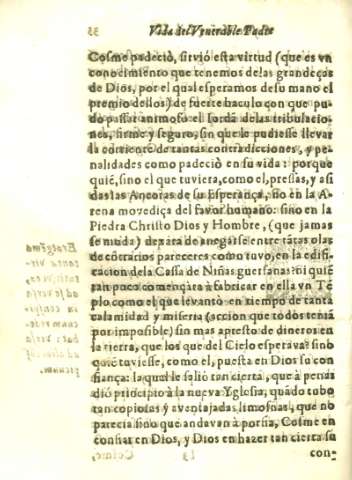 Vida del Venerable Padre
Cosme padeciò, sirviò esta virtud (que es vn
conocimiento que tenemos delas grandeças
de Dios, por el qual esperamos de su mano el
premio dellos) de fuerte baculo con que pu-
do passar animoso el Iordã delas tribulacio-
nes, firme y seguro, sin que le pudiesse llevar
la corriente de tantas contradicciones, y pe-
nalidades como padeciò en su vida: porque
quiẽ, sino el que tuviera, como el, pressas, y asi
das las Ancoras de su Esperança, no en la A-
rena movediça del favor humano: sino en la
Piedra Christo Dios y Hombre, (que jamas
se muda) dexara de anegarse entre tãtas olas
de cõtrarios pareceres como tuvo, en la edifi-
cacion dela Cassa de Niñas guerfanas? ni quiẽ
tan poco començara à fabricar en ella vn Tẽ
plo como el que levantò en tiempo de tanta
calamidad y miseria (accion que todos teniã
por imposible) sin mas apresto de dineros en
la tierra, que los que del Cielo esperava? sino
quiẽ tuviesse, como el, puesta en Dios su con
fiança: la qual le saliò tan cierta, que à penas
diò principio à la nueva Yglesia, quãdo tubo
tan copiosas y aventajadas limosnas, que no
parecia sino que andavan à porfia, Cosme en
confiar en Dios, y Dios en hazer tan cierta su
con-